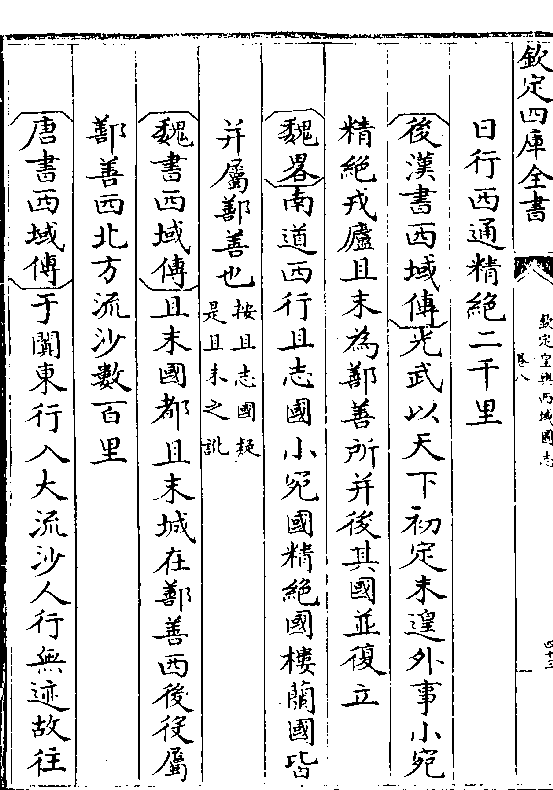 欽定四庫全書
欽定皇輿西域圖志
卷八
四十三
日行西通精絶二千里
後漢書西域傳光武以天下初定未遑外事小宛
精絶戎廬且末為鄯善所并後其國並復立
魏畧南道西行且志國小宛國精絶國樓蘭國皆
并屬鄯善也按且志國疑
是且末之訛
魏書西域傳且末國都且末城在鄯善西後役屬
鄯善西北方流沙數百里
唐書西域傳于闐東行入大流沙人行無迹故往